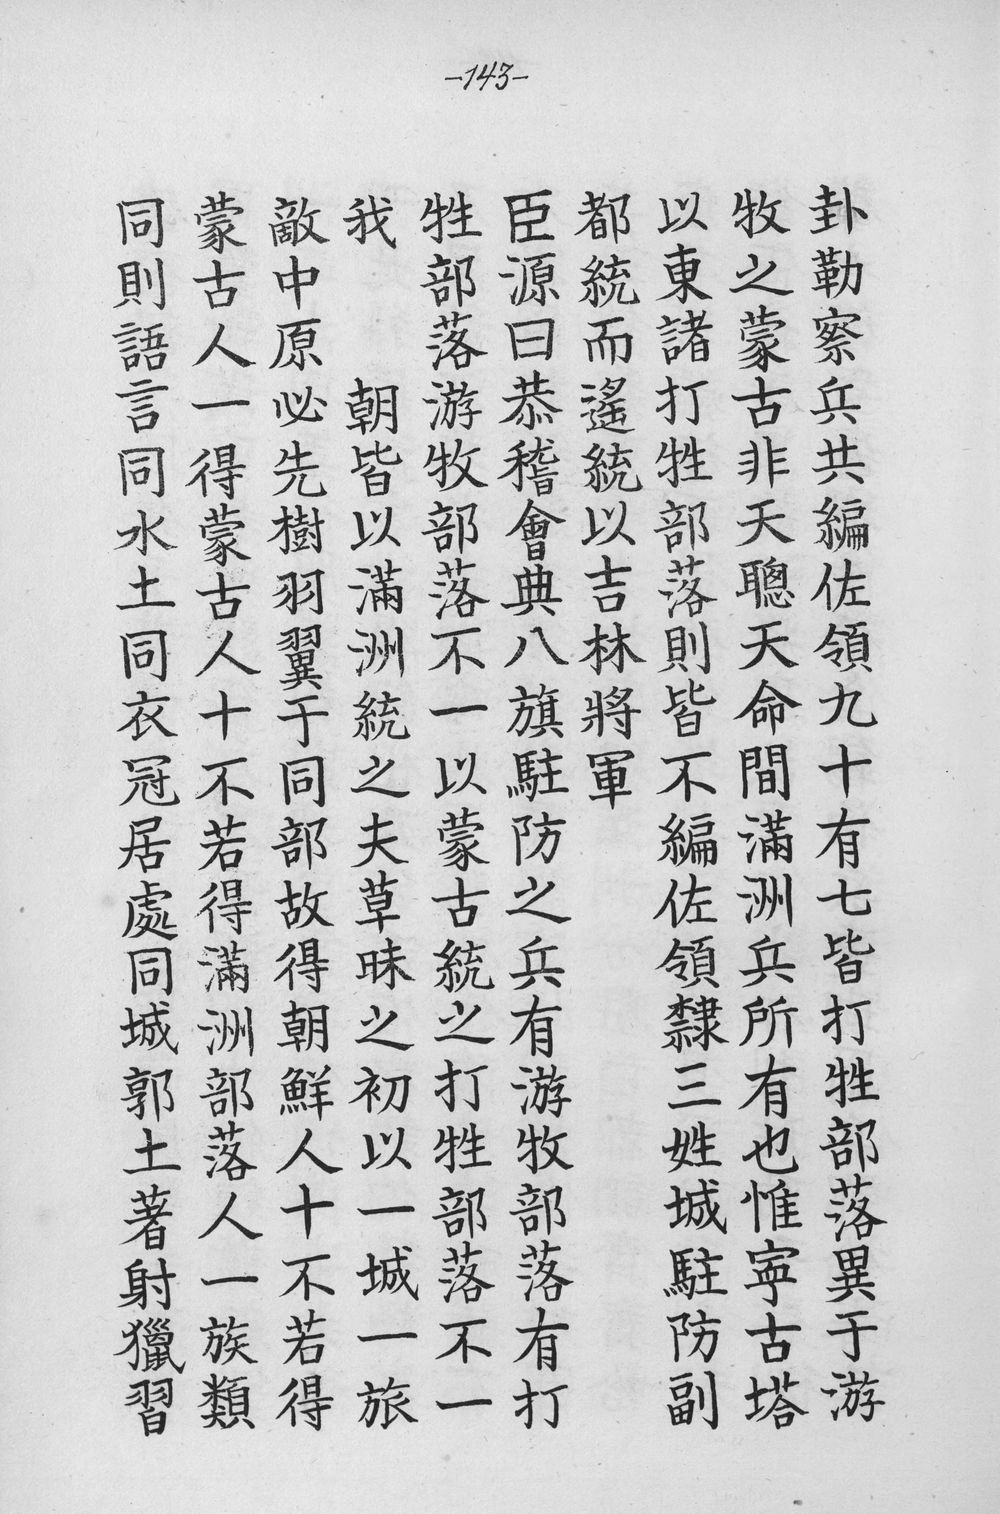 -143-
卦勒察兵共編佐領九十有七皆打牲部落異于游
牧之蒙古非天聰天命間滿洲兵所有也惟寧古塔
以東諸打牲部落則皆不編佐領隸三姓城駐防副
都統而遙統以吉林將軍
臣源曰恭稽會典八旗駐防之兵有游牧部落有打
牲部落游牧部落不一以蒙古統之打牲部落不一
我　朝皆以滿洲統之夫草昧之初以一城一旅
敵中原必先樹羽翼于同部故得朝鮮人十不若得
蒙古人一得蒙古人十不若得滿洲部落人一族類
同則語言同水土同衣冠居處同城郭土著射獵習